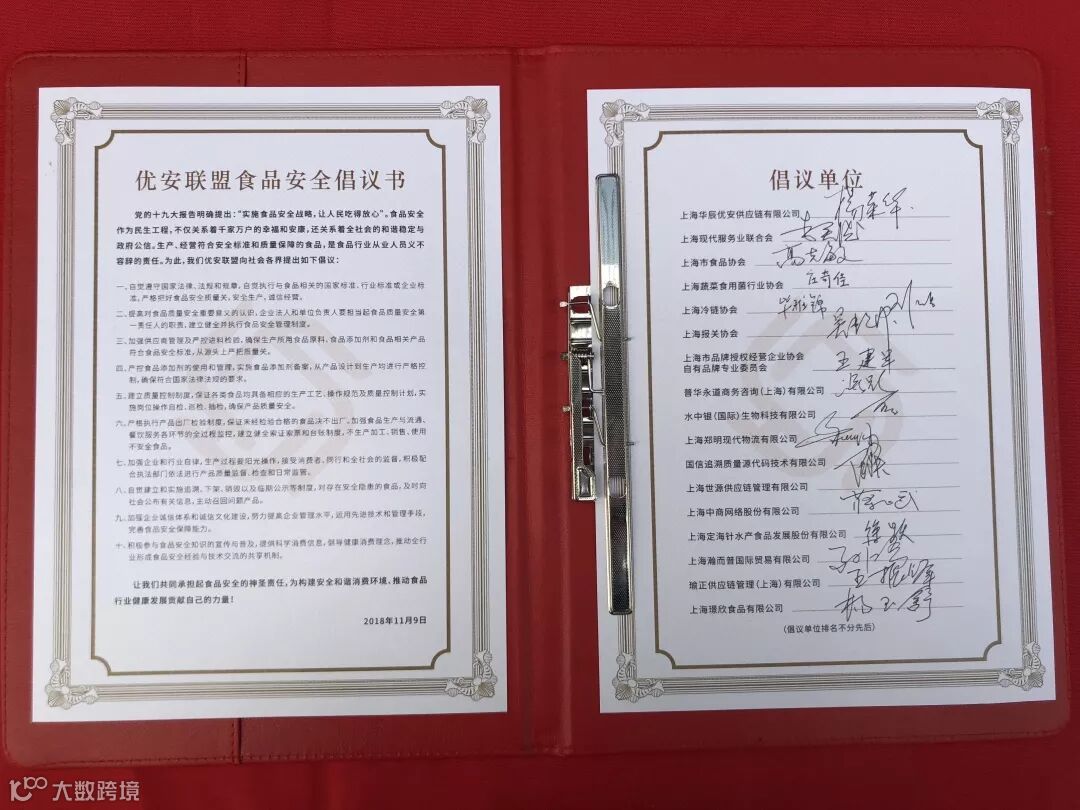 优安联盟食品安全倡议书
党的十九大报告明确提出：“实施食品安全战略，让人民吃得放心”。食品安全
作为民生工程，不仅关系着千家万户的幸福和安康，还关系着全社会的和谐稳定与
政府公信。生产、经营符合安全标准和质量保障的食品，是食品行业从业人员义不
容辞的责任。为此，我们优安联盟向社会各界提出如下倡议：
一、自觉遵守国家法律、法规和规章，自觉执行与食品相关的国家标准、行业标准或企业标
准，严格把好食品安全质量关，安全生产，诚信经营。
二、提高对食品质量安全重要意义的认识，企业法人和单位负责人要担当起食品质量安全第
一责任人的职责，建立健全并执行食品安全管理制度。
三、加强供应商管理及严控进料检验，确保生产所用食品原料、食品添加剂和食品相关产品
符合食品安全标准，从源头上严把质量关。
四、严控食品添加剂的使用和管理，实施食品添加剂备案，从产品设计到生产均进行严格控
制，确保符合国家法律法规的要求。
五、建立质量控制制度，保证各类食品均具备相应的生产工艺、操作规范及质量控制计划，实
施岗位操作自检、巡检、抽检，确保产品质量安全。
六、严格执行产品出厂检验制度，保证未经检验合格的食品决不出厂。加强食品生产与流通、
餐饮服务各环节的全过程监控，建立健全索证索票和台账制度，不生产加工、销售、使用
不安全食品。
七、加强企业和行业自律，生产过程要阳光操作，接受消费者、同行和全社会的监督，积极配
合执法部门依法进行产品质量监督、检查和日常监管。
八、自觉建立和实施追溯、下架、销毁以及临期公示等制度，对存在安全隐患的食品，及时向
社会公布有关信息，主动召回问题产品。
九、加强企业诚信体系和诚信文化建设，努力提高企业管理水平，运用先进技术和管理手段，
完善食品安全保障能力。
十、积极参与食品安全知识的宣传与普及，提供科学消费信息，倡导健康消费理念，推动全行
业形成食品安全经验与技术交流的共享机制。
让我们共同承担起食品安全的神圣责任，为构建安全和谐消费环境、推动食品
行业健康发展贡献自己的力量！
2018年11月9日
倡议单位
上海华辰优安供应链有限公司 杨荣华
上海现代服务业联合会
上海市食品协会 高克敏
上海蔬菜食用菌行业协会 庄奇佳
上海冷链协会
上海报关协会
上海市品牌授权经营企业协会 王建军
自有品牌专业委员会
普华永道商务咨询（上海）有限公司
水中银（国际）生物科技有限公司
上海郑明现代物流有限公司
国信追溯质量源代码技术有限公司
上海世源供应链管理有限公司
上海中商网络股份有限公司
上海定海针水产食品发展股份有限公司
上海瀚而普国际贸易有限公司
瑜正供应链管理（上海）有限公司
上海璟欣食品有限公司 杨玉舒
（倡议单位排名不分先后）
大数跨境